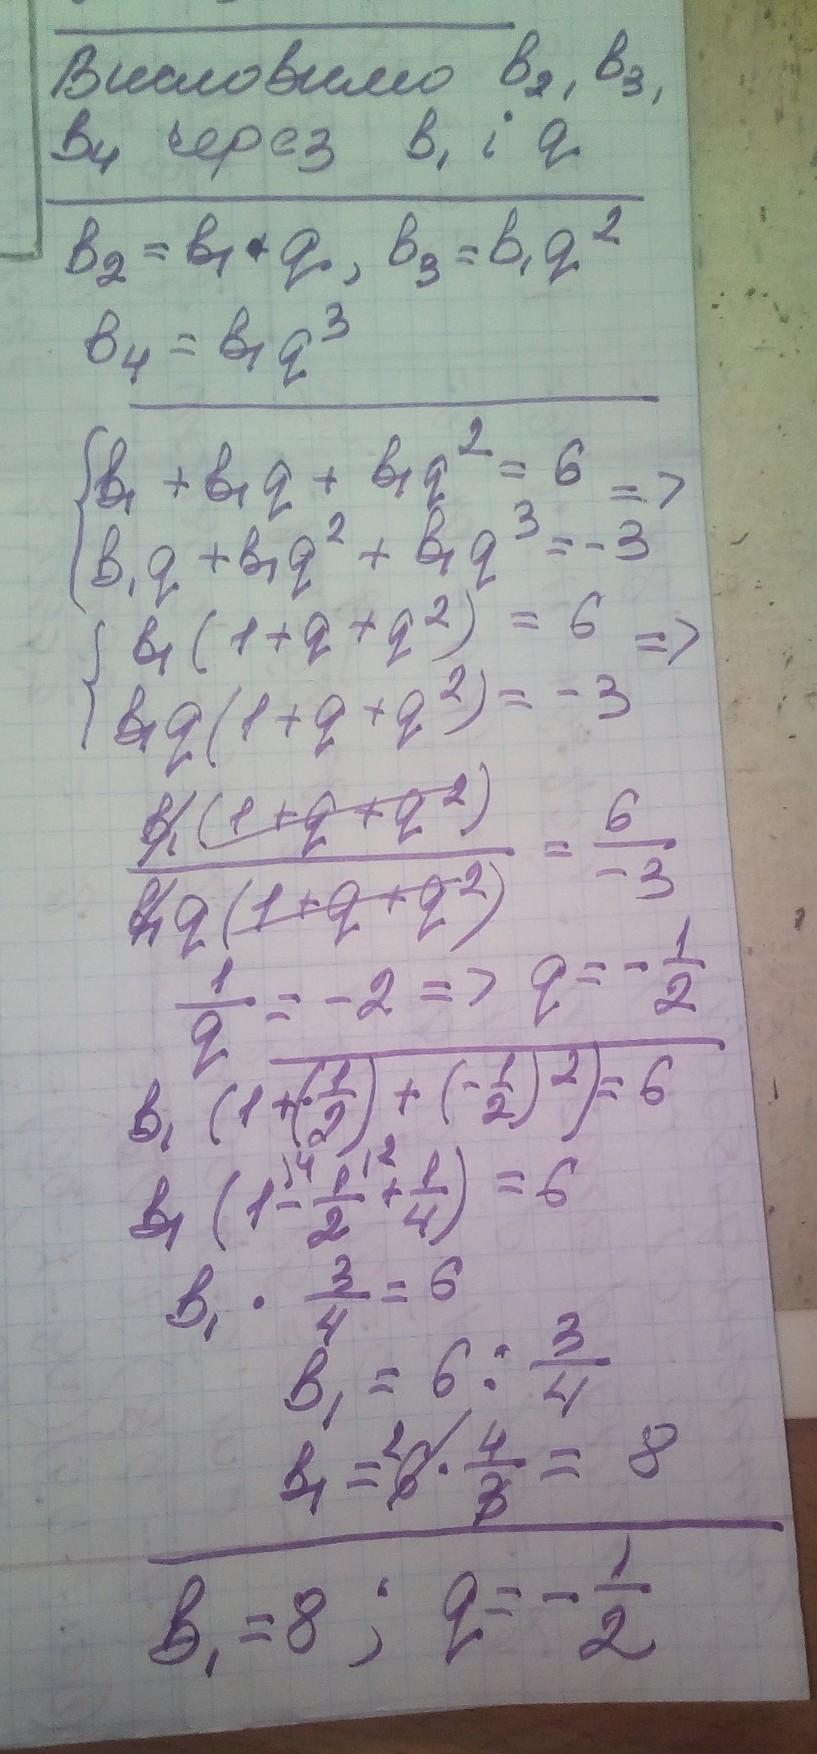 Висловимо b₂, b₃,
b₄ через b₁ і q
b₂ = b₁ · q, b₃ = b₁q²
b₄ = b₁q³
{ b₁ + b₁q + b₁q² = 6 =>
b₁q + b₁q² + b₁q³ = -3
{ b₁(1 + q + q²) = 6 =>
b₁q(1 + q + q²) = -3
b₁(1 + q + q²) / b₁q(1 + q + q²) = 6 / -3
1/q = -2 => q = -1/2
b₁ (1 + (-1/2) + (-1/2)²) = 6
b₁ (1 - 1/2 + 1/4) = 6
b₁ · 3/4 = 6
b₁ = 6 : 3/4
b₁ = 6 · 4/3 = 8
b₁ = 8 ; q = -1/2